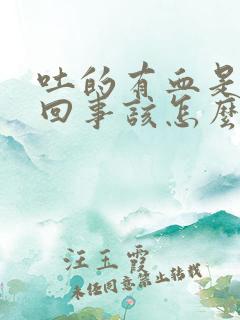 吐的有血是
回事该怎么
汪玉霞
未经同意禁止转载